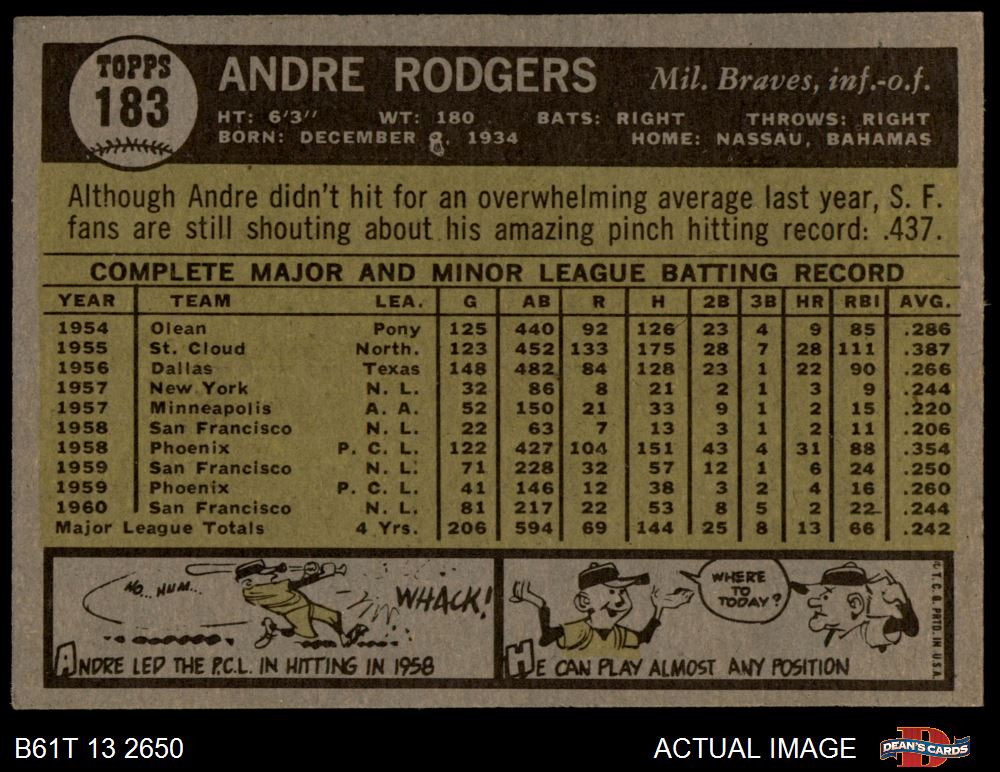 TOPPS
183
ANDRE RODGERS Mil. Braves, inf.-o.f.
HT: 6'3'' WT: 180 BATS: RIGHT THROWS: RIGHT
BORN: DECEMBER 1934 HOME: NASSAU, BAHAMAS
Although Andre didn't hit for an overwhelming average last year, S. F.
fans are still shouting about his amazing pinch hitting record: .437.
COMPLETE MAJOR AND MINOR LEAGUE BATTING RECORD
YEAR TEAM LEA. G AB R H 2B 3B HR RBI AVG.
1954 Olean Pony 125 440 92 126 23 4 9 85 .286
1955 St. Cloud North. 123 452 133 175 28 7 28 111 .387
1956 Dallas Texas 148 482 84 128 23 1 22 90 .266
1957 New York N. L. 32 86 8 21 2 1 3 9 .244
1957 Minneapolis A. A. 52 150 21 33 9 1 2 15 .220
1958 San Francisco N. L. 22 63 7 13 3 1 2 11 .206
1958 Phoenix P. C. L. 122 427 104 151 43 4 31 88 .354
1959 San Francisco N. L. 71 228 32 57 12 1 6 24 .250
1959 Phoenix P. C. L. 41 146 12 38 3 2 4 16 .260
1960 San Francisco N. L. 81 217 22 53 8 5 2 22 .244
Major League Totals 4 Yrs. 206 594 69 144 25 8 13 66 .242
HO.. HUM...
WHACK!
ANDRE LED THE P.C.L. IN HITTING IN 1958
WHERE
TO
TODAY?
HE CAN PLAY ALMOST ANY POSITION
© T. C. G. PRTD. IN U.S.A.
B61T 13 2650 ACTUAL IMAGE DEAN'S CARDS